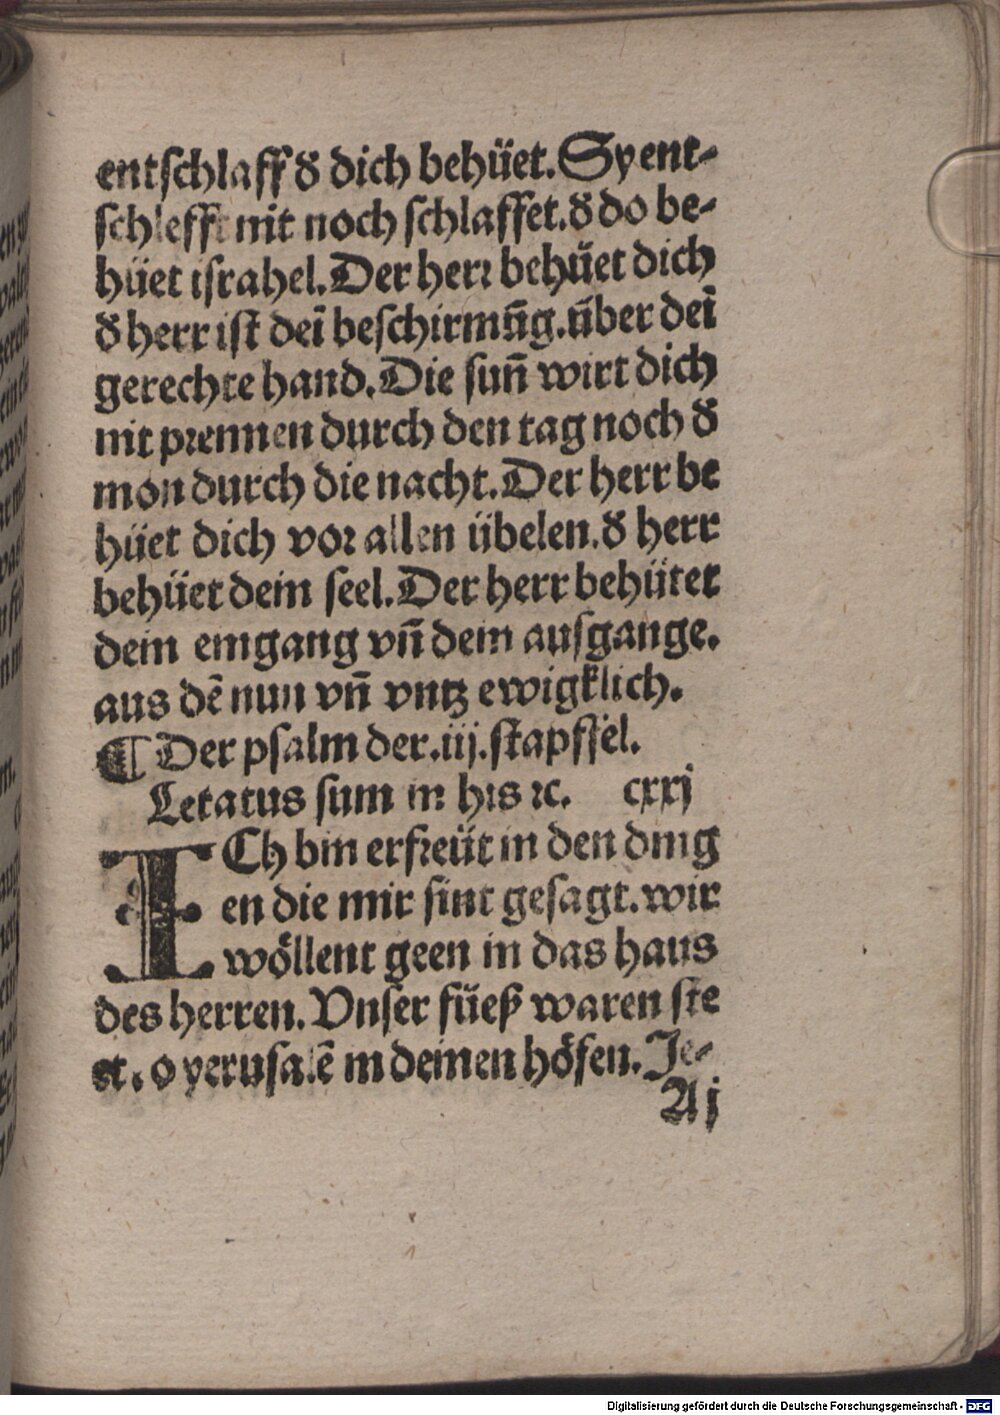 entschlaff ď dich behüet. Sy ent-
schlefft nit noch schlaffet. ď do be-
hüet israhel. Der herr behüet dich
ď herr ist dei beschirmūg. über dei
gerechte hand. Die sun̄ wirt dich
nit prennen durch den tag noch ď
mon durch die nacht. Der herr be
hüet dich vor allen übelen. ď herr
behüet dein seel. Der herr behütet
dein eingang vn̄ dein ausgange.
aus dē nun vn̄ vntz ewigklich.
¶ Der psalm der .iij. stapffel.
Letatus sum in his ꝛc. cxxj
ICh bin erfreüt in den ding
en die mir sint gesagt. wir
wöllent geen in das haus
des herren. Vnser füeß waren ste
et. o yerusalē in deinen höfen. Je-
Aj
Digitalisierung gefördert durch die Deutsche Forschungsgemeinschaft - DFG